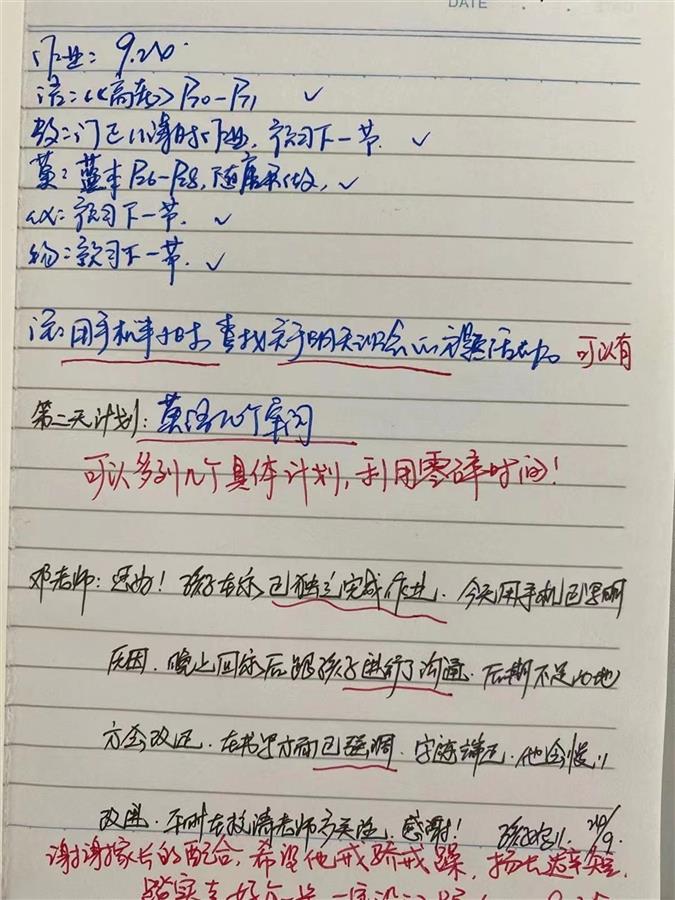 DATE
作业: 9.20.
语:《高考》P70—P71 ✓
数:订正小课时作业,预习下一节. ✓
英:蓝本P26—P28,随
化:预习下一节. ✓
物:预习下一节. ✓
注:用手机半小时,查找关于明天班会的主题活动。 可以有
第二天计划:英语20个单词
可以多列几个具体计划,利用零碎时间!
邓老师:您好!孩子在家已独立完成作业. 今天用手机已写明
原因. 晚上回家后跟孩子进行了沟通. 后期不足的地
方会改进. 在书写方面已强调. 字迹端正. 他会慢慢
改进. 平时在校请老师多关注. 感谢! 20/9.
谢谢家长的配合,希望他戒骄戒躁,扬长避短,
踏实走好每一步